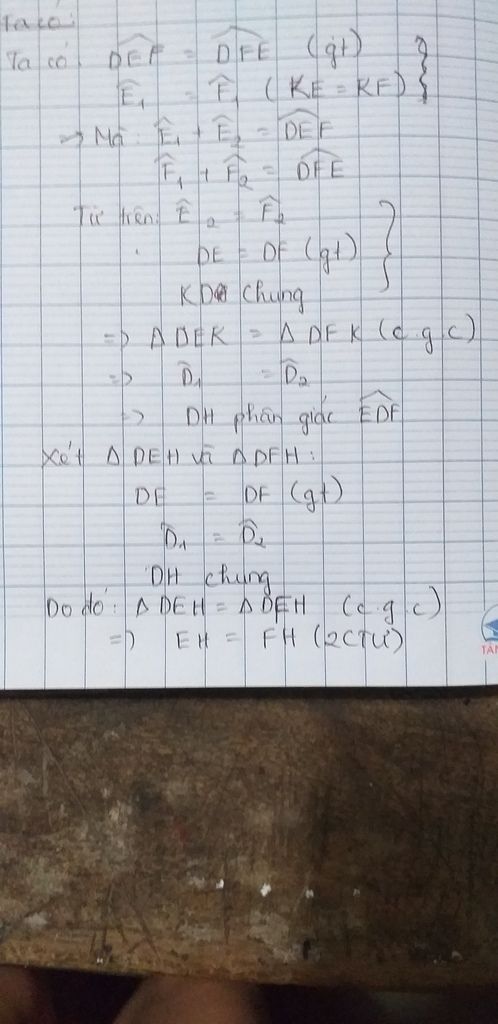 Ta có:
Ta có DEF = DFE (gt)
Ê₁ = F̂₁ (KE = KF)
→ Mà: Ê₁ + Ê₂ = DEF
F̂₁ + F̂₂ = DFE
Từ trên: Ê₂ = F̂₂
DE = DF (gt)
KD chung
=> Δ DEK = Δ DFK (c.g.c)
=> D̂₁ = D̂₂
=> DH phân giác EDF
Xét Δ DEH và Δ DFH:
DE = DF (gt)
D̂₁ = D̂₂
DH chung
Do đó: Δ DEH = Δ DFH (c.g.c)
=> EH = FH (2CTƯ)